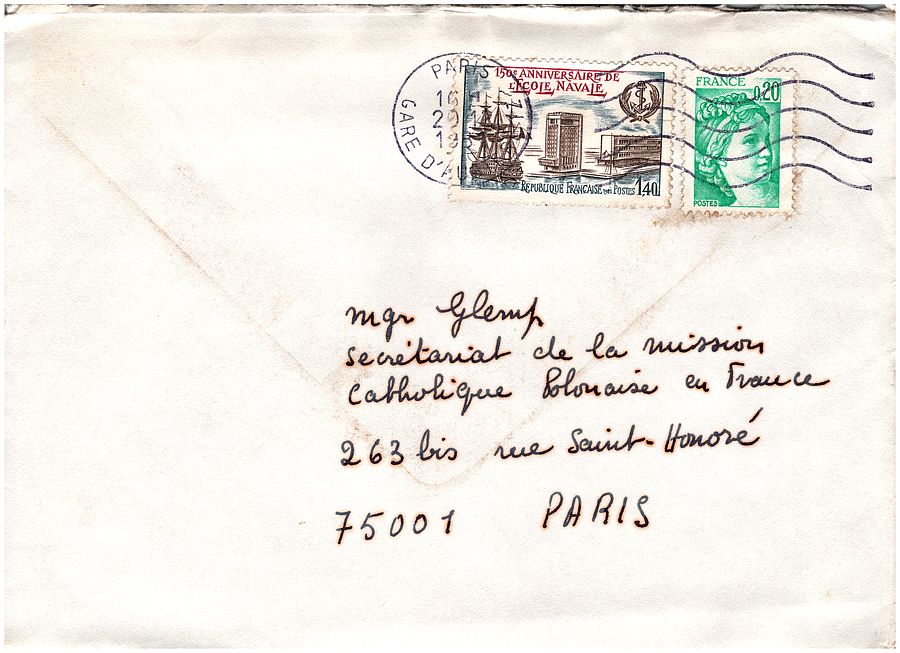 PARIS
GARE D'AU
150e ANNIVERSAIRE DE
L'ÉCOLE NAVALE
REPUBLIQUE FRANÇAISE POSTES 1,40
FRANCE
0,20
POSTES
Mgr Glemp
secrétariat de la mission
Catholique Polonaise en France
263 bis rue Saint-Honoré
75001 PARIS